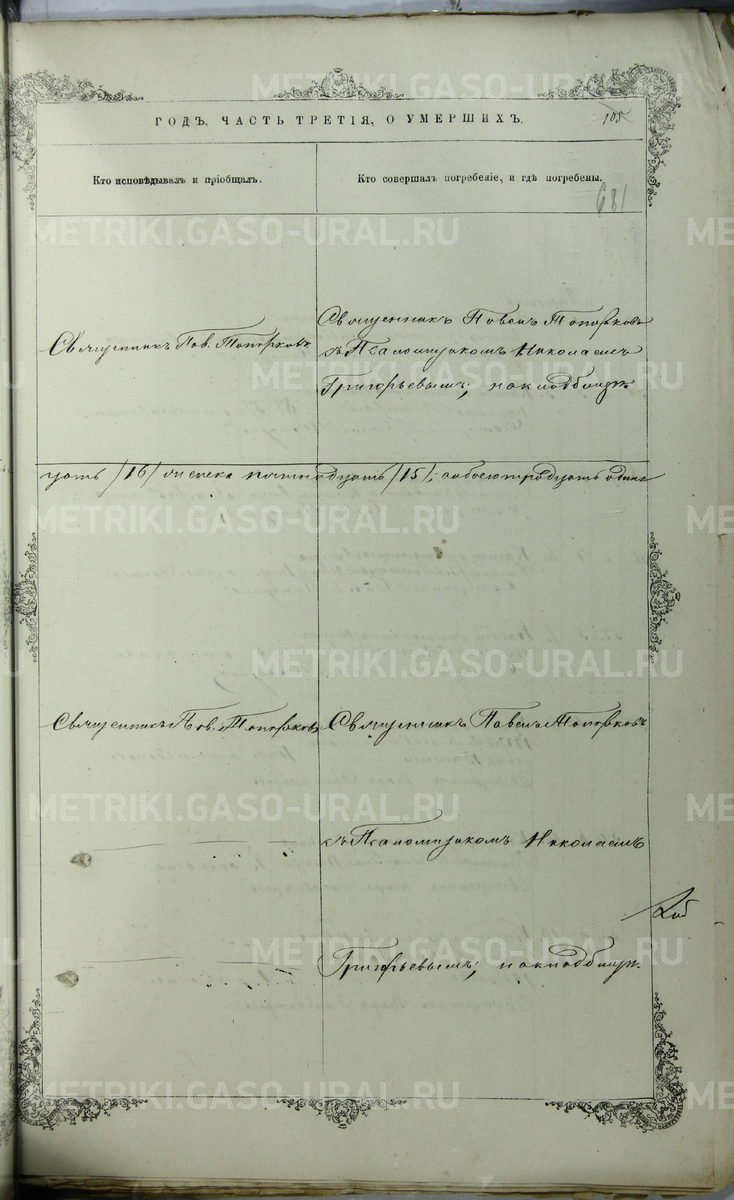 ГОДЪ, ЧАСТЬ ТРЕТІЯ, О УМЕРШИХЪ.
105
Кто исповѣдывалъ и пріобщалъ.
Кто совершалъ погребеніе, и гдѣ погребены.
681
Священникъ Пав. Топорковъ
Священникъ Павелъ Топорковъ
съ Псаломщикомъ Николаемъ
Григорьевымъ, на кладбищѣ.
цать /16/ женска пятнадцать /15/, обоего тридцать одинъ
Священникъ Пав. Топорковъ
Священникъ Павелъ Топорковъ
съ Псаломщикомъ Николаемъ
Григорьевымъ, на кладбищѣ.
METRIKI.GASO-URAL.RU